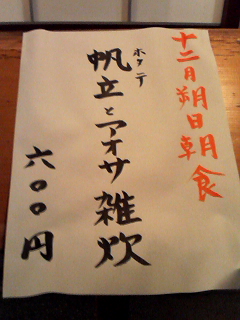 十二月朔日朝食
ホタテ
帆立とアオサ雑炊
六〇〇円